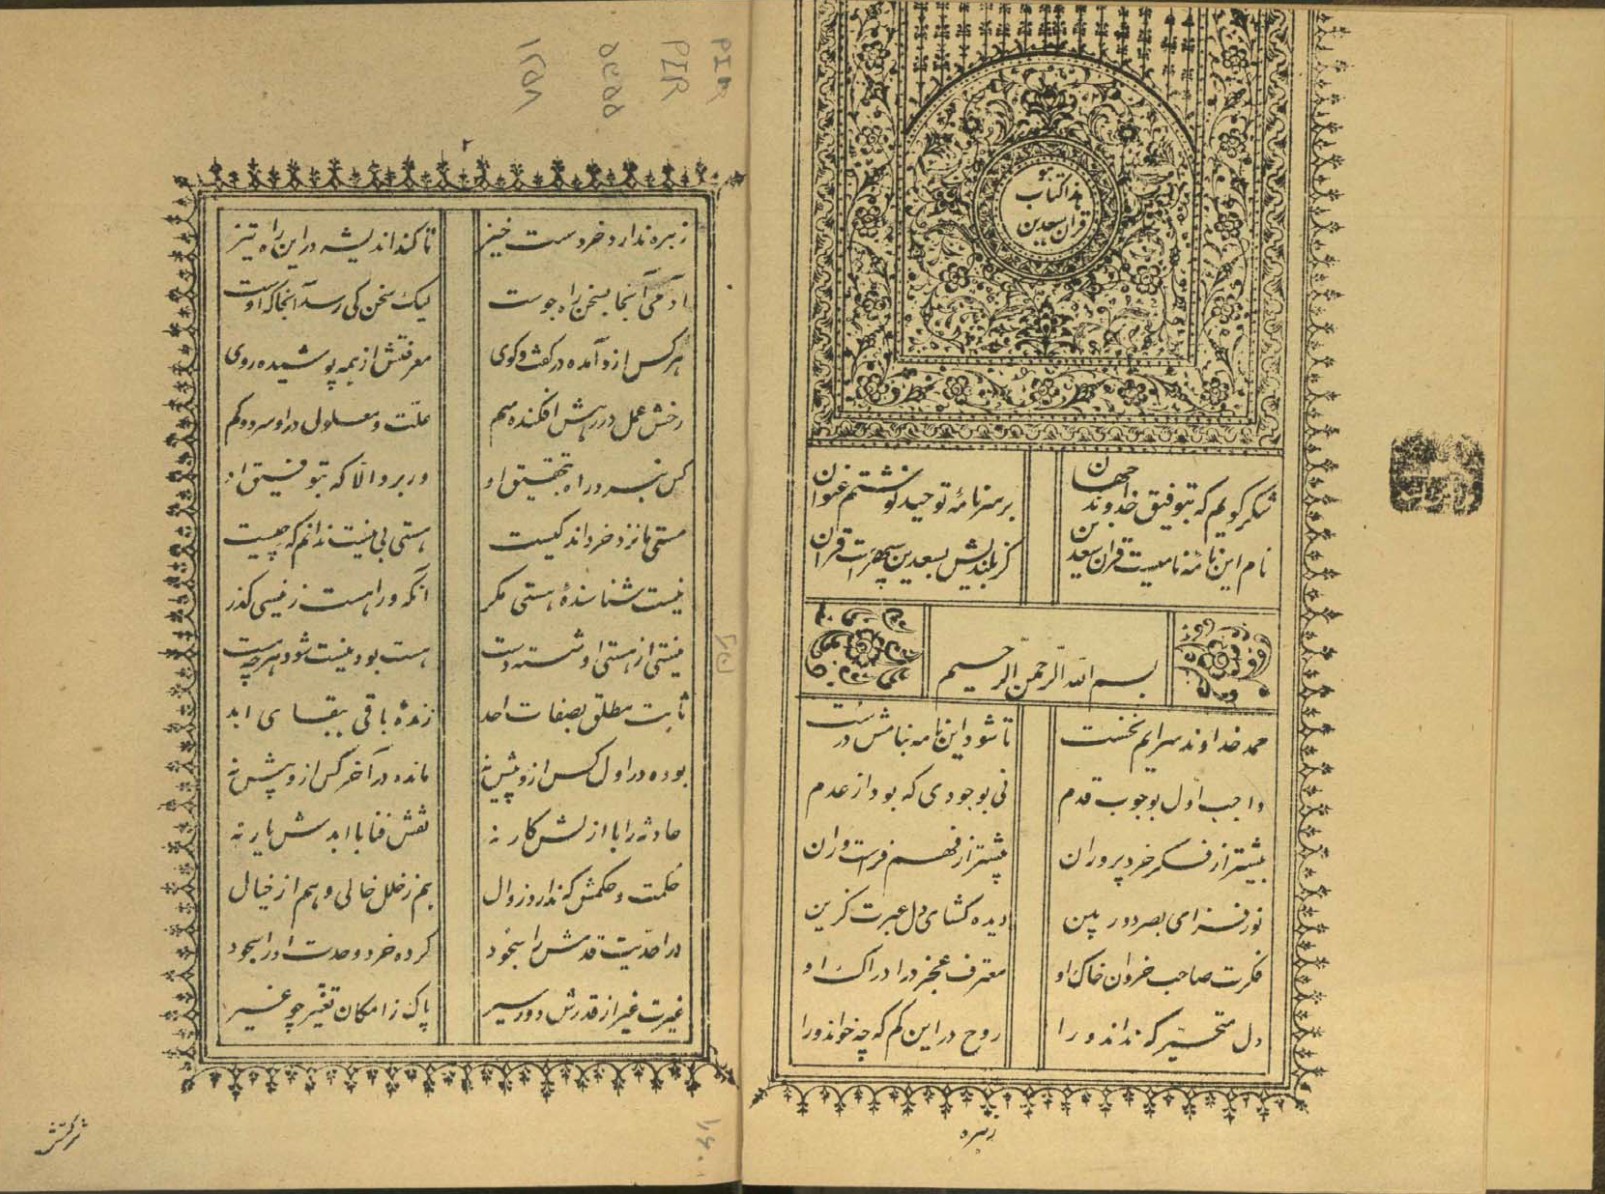 هو
هذا الکتاب
قران سعدین
شکر گویم که بتوفیق خداوند جهان
بر سر نامهٔ توحید نوشتم عنوان
نام این نامهٔ نامیست قران سعدین
کز بلندیش بسعدین سپهرست قران
بسم الله الرحمن الرحیم
حمد خداوند سرایم نخست
تا شود این نامه بنامش درست
واجب اول بوجوب قدم
نی بوجودی که بود از عدم
بیشتر از فکر خرد پروران
پیشتر از فهم فراست وران
نور فزای بصر دور بین
دیده کشای دل عبرت گزین
فکرت صاحب خردان خاک او
معترف عجز در ادراک او
دل متحیر که نداند ورا
روح در این گم که چه خواند ورا
زهره
۲
زهره ندارد خرد سست خیز
تا کند اندیشه در این راه تیز
آدمی آنجا بسخن راه جوست
لیک سخن کی رسد آنجا که اوست
هر کس ازو آمده در گفت و گوی
معرفتش از همه پوشیده روی
رخش عمل در رهش افکنده سم
علت و معلول در او سر و گم
کس نبرد راه بتحقیق او
ور برد الا که بتوفیق او
هستی ما نزد خرد اندکیست
هستی بی نیست ندانم که چیست
نیست شناسندهٔ هستی مگر
آنکه ورا هست ز نیسی گذر
نیستی از هستی او شسته دست
هست بود نیست شود هر چه هست
ثابت مطلق بصفات احد
زندهٔ باقی ببقای ابد
بوده در اول کس ازو پیش نه
مانده در آخر کس ازو پیش نه
حادثه را با ازلش کار نه
نقش فنا با ابدش یار نه
حکمت و حکمش که ندارد زوال
هم ز خلل خالی و هم از خیال
در احدیت قدمش را سجود
کرده خرد وحدت او را سجود
غیرت غیر از قدرش دور سیر
پاک ز امکان تغیر چو غیر
PIR
PIR
۵۵۳۵
۱۶۰۱